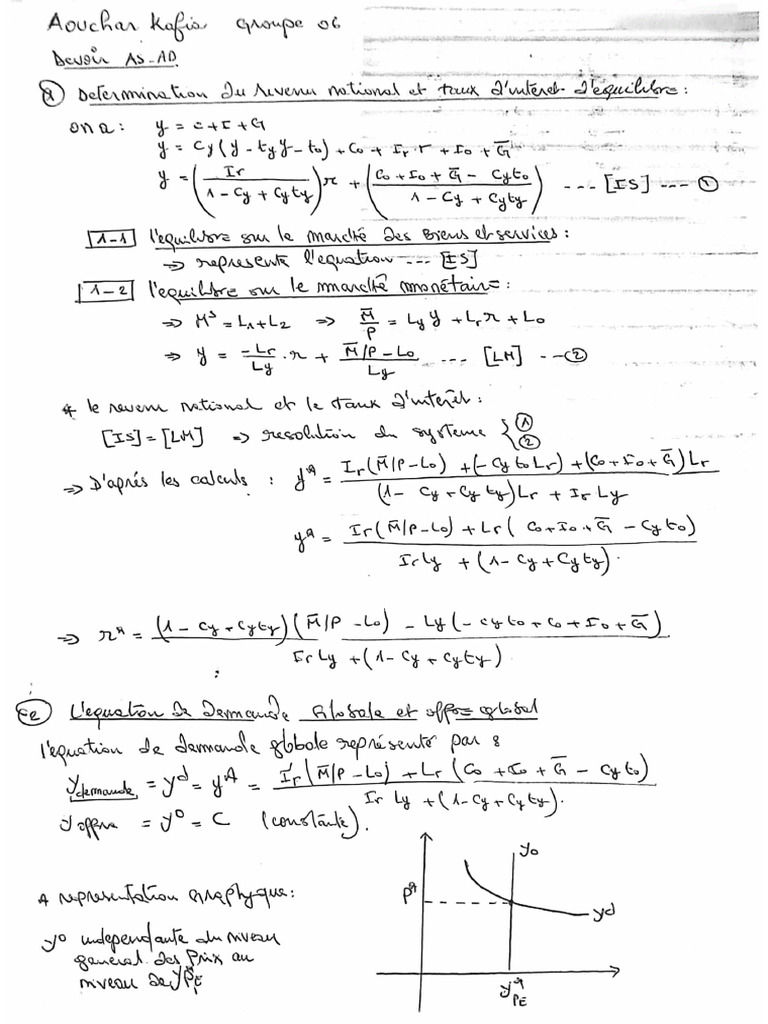 Aouchar Kafia Groupe 06
Devoir AS-AD
① Determination du revenu national et taux d'interêt d'équilibre :
on a : y = C + I + G
y = Cy(y - tyy - t₀) + C₀ + Ir r + I₀ + G̅
y = (Ir / (1 - Cy + Cyty)) r + ((C₀ + I₀ + G̅ - Cyt₀) / (1 - Cy + Cyty)) --- [IS] --- ①
1-1 l'equilibre sur le marché des biens et services :
⇒ represente l'equation --- [IS]
1-2 l'equilibre sur le marché monétaire :
⇒ Mˢ = L₁ + L₂ ⇒ M̅/P = Ly y + Lr r + L₀
⇒ y = (-Lr / Ly) . r + (M̅/P - L₀) / Ly --- [LM] --- ②
* le revenu national et le taux d'interêt :
[IS] = [LM] ⇒ resolution du systeme { ① ②
⇒ D'aprés les calculs : y* = (Ir(M̅/P - L₀) + (-Cy t₀ Lr) + (C₀ + I₀ + G̅) Lr) / ((1 - Cy + Cy ty) Lr + Ir Ly)
y* = (Ir(M̅/P - L₀) + Lr(C₀ + I₀ + G̅ - Cy t₀)) / (Ir Ly + (1 - Cy + Cy ty)) .
⇒ r* = ((1 - Cy + Cyty)(M̅/P - L₀) - Ly(-Cyt₀ + C₀ + I₀ + G̅)) / (Ir Ly + (1 - Cy + Cyty))
:
2 L'equation de Demande Globale et offre global
l'équation de demande globale représenté par :
y demande = yᵈ = y* = (Ir(M̅/P - L₀) + Lr(C₀ + I₀ + G̅ - Cy t₀)) / (Ir Ly + (1 - Cy + Cy ty)) .
y offre = y⁰ = C (constante) .
y₀
representation Graphyque :
P*
yᵈ
y⁰ independante du niveau
general des Prix au
niveau de y*PE
y*PE